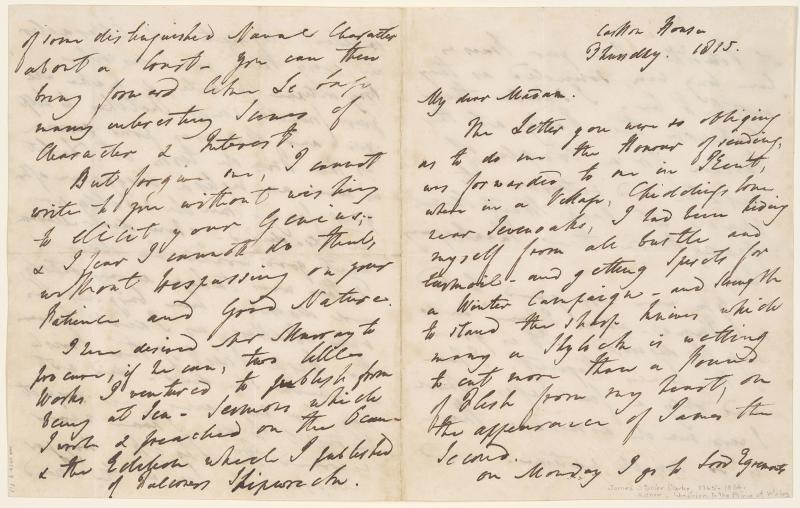 Carlton House
Thursday. 1815.
My dear Madam.
The Letter you were so obliging
as to do me the Honour of sending,
was forwarded to me in Kent,
where in a Village, Chiddingstone
near Sevenoaks, I had been hiding
myself from all bustle and
turmoil - and getting Spirits for
a Winter Campaign - and Strength
to stand the sharp knives which
many a Shylock is wetting
to cut more than a Pound
of Flesh from my heart, on
the appearance of James the
Second.
on Monday I go to Lord Egremonts
of some distinguished Naval Character
about a Court - you can then
bring forward like Le
many interesting Scenes of
Character & Interest.
But forgive me, I cannot
write to you without wishing
to elicit your Genius;-
& I fear I cannot do that,
without trespassing on your
Patience and Good Nature.
I have desired Mr. Murray to
procure, if he can, two little
Works I ventured to publish from
being at Sea - Sermons which
I wrote & preached on the Ocean
& the Edition which I published
of Falconers Shipwreck.
James Stanier Clarke, 1765-1834.
Librarian to the Prince of Wales